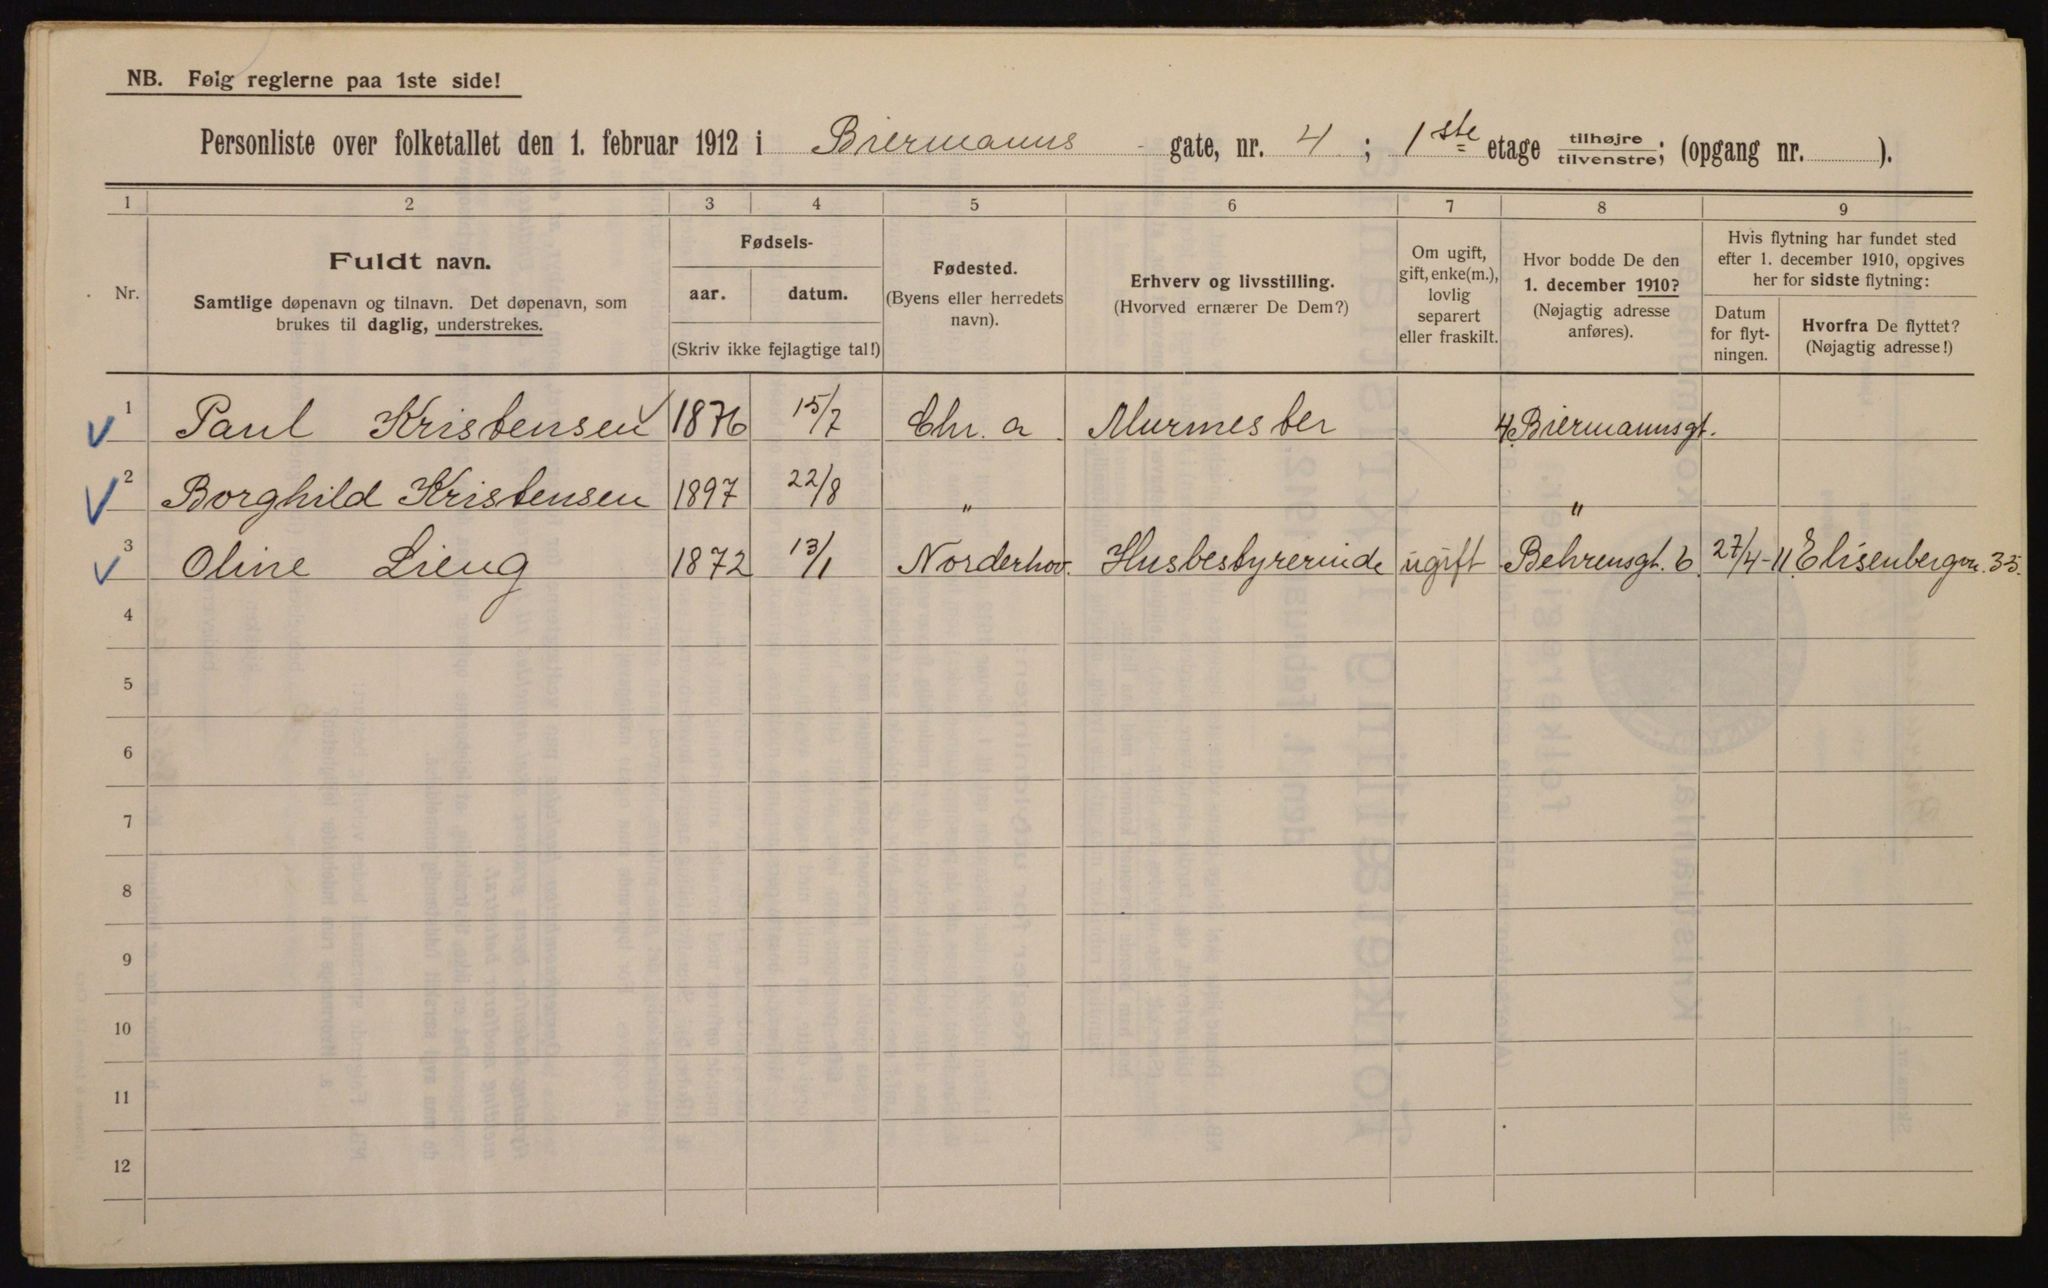 NB. Følg reglerne paa 1ste side!
Personliste over folketallet den 1. februar 1912 i Biermanns gate, nr. 4; 1ste etage tilhøjre/tilvenstre; (opgang nr. ).
1 2 3 4 5 6 7 8 9
Nr.
Fuldt navn.
Samtlige døpenavn og tilnavn. Det døpenavn, som
brukes til daglig, understrekes.
Fødsels-
aar. datum.
(Skriv ikke fejlagtige tal!)
Fødested.
(Byens eller herredets
navn).
Erhverv og livsstilling.
(Hvorved ernærer De Dem?)
Om ugift,
gift, enke(m.),
lovlig
separert
eller fraskilt.
Hvor bodde De den
1. december 1910?
(Nøjagtig adresse
anføres).
Hvis flytning har fundet sted
efter 1. december 1910, opgives
her for sidste flytning:
Datum
for flyt-
ningen.
Hvorfra De flyttet?
(Nøjagtig adresse!)
1 Paul Kristensen 1876 15/7 Chr. a Murmester 4 Biermannsgt.
2 Borghild Kristensen 1897 22/8 " "
3 Oline Lieng 1872 13/1 Norderhov. Husbestyrerinde ugift Behrensgt. 6 27/4-11 Elisenbergvn. 35.
4
5
6
7
8
9
10
11
12